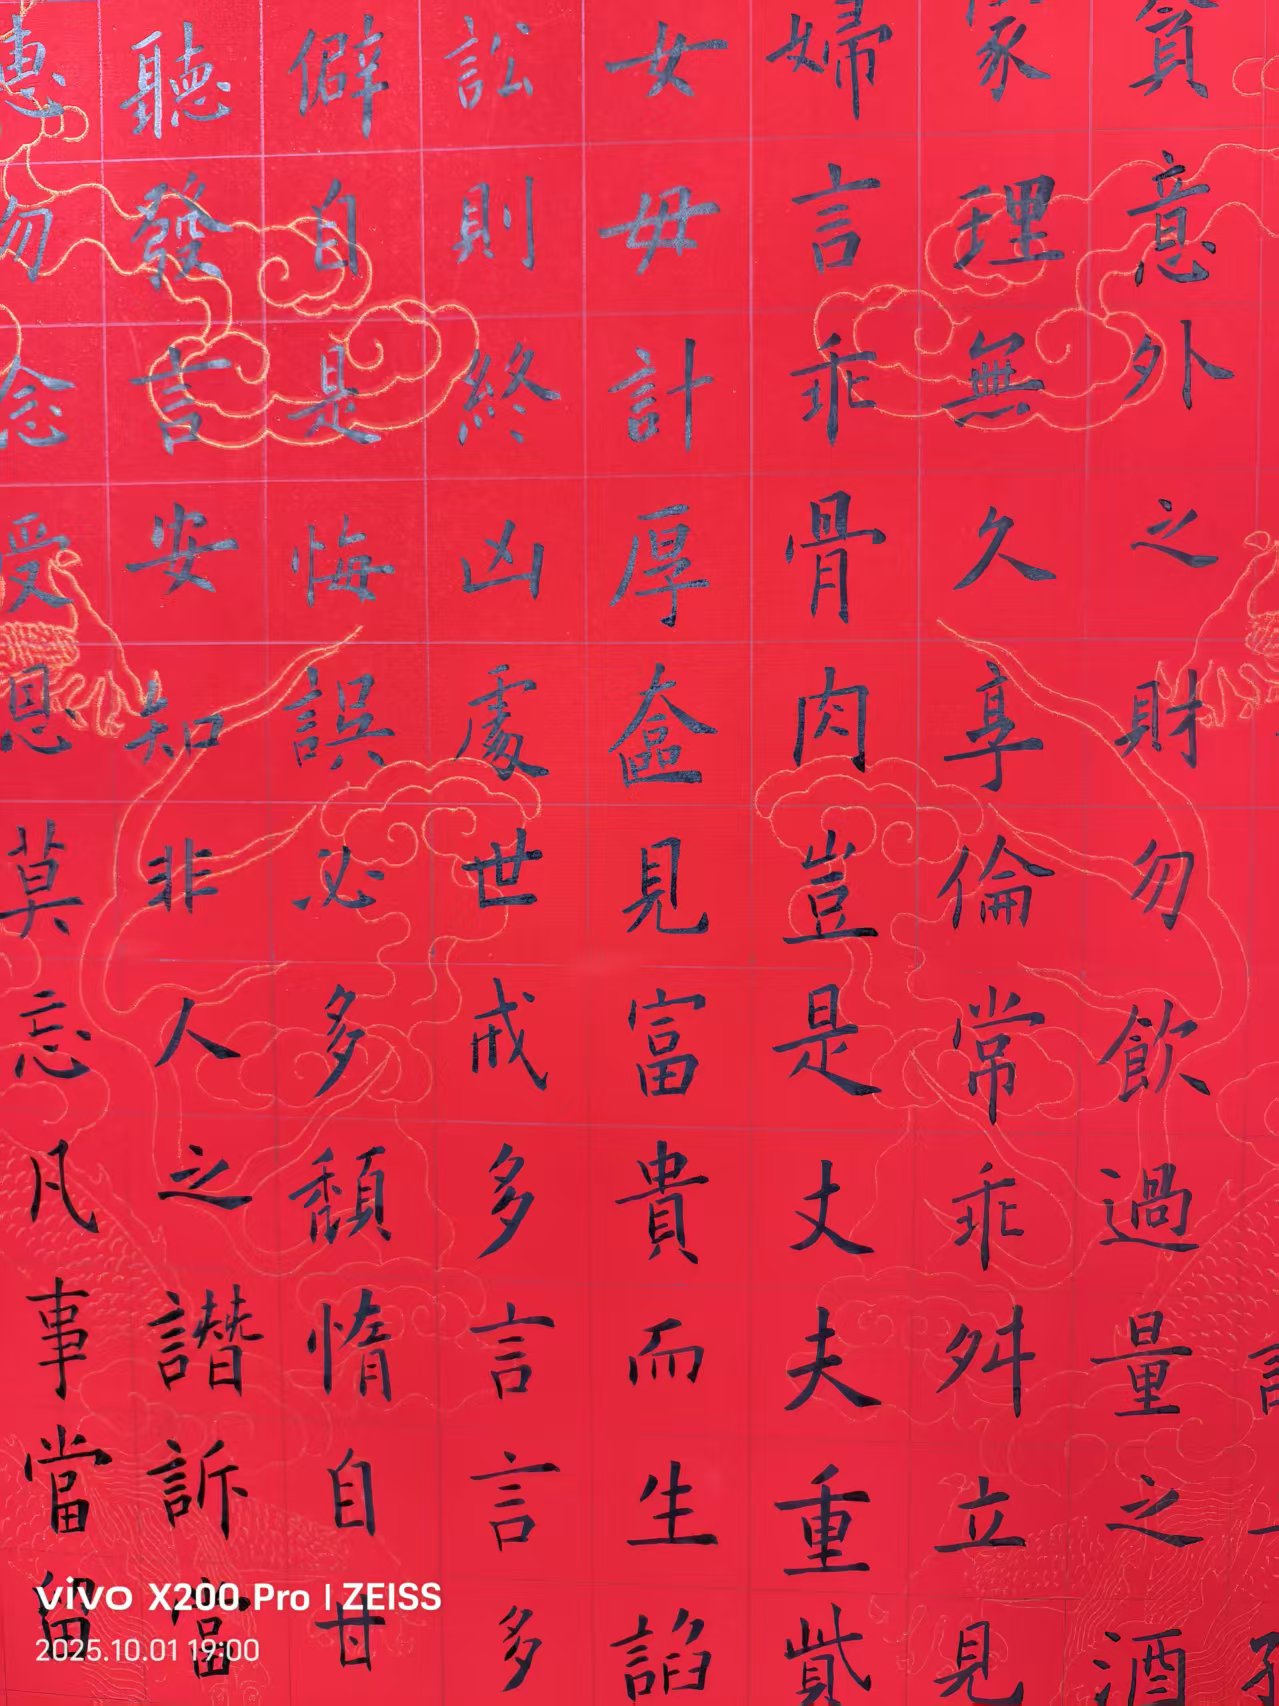 貪意外之財勿飲過量之酒
家理無久享倫常乖舛立見
婦言乖骨肉豈是丈夫重貲
女毋計厚奩見富貴而生諂
訟則終凶處世戒多言言多
僻自是悔誤必多頹惰自甘
聽發言安知非人之譖訴當
惠勿念受恩莫忘凡事當留
vivo X200 Pro | ZEISS
2025.10.01 19:00